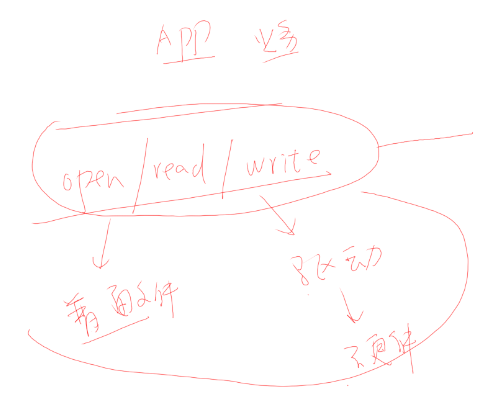 APP 业务
open/read/write
普通文件
驱动
硬件